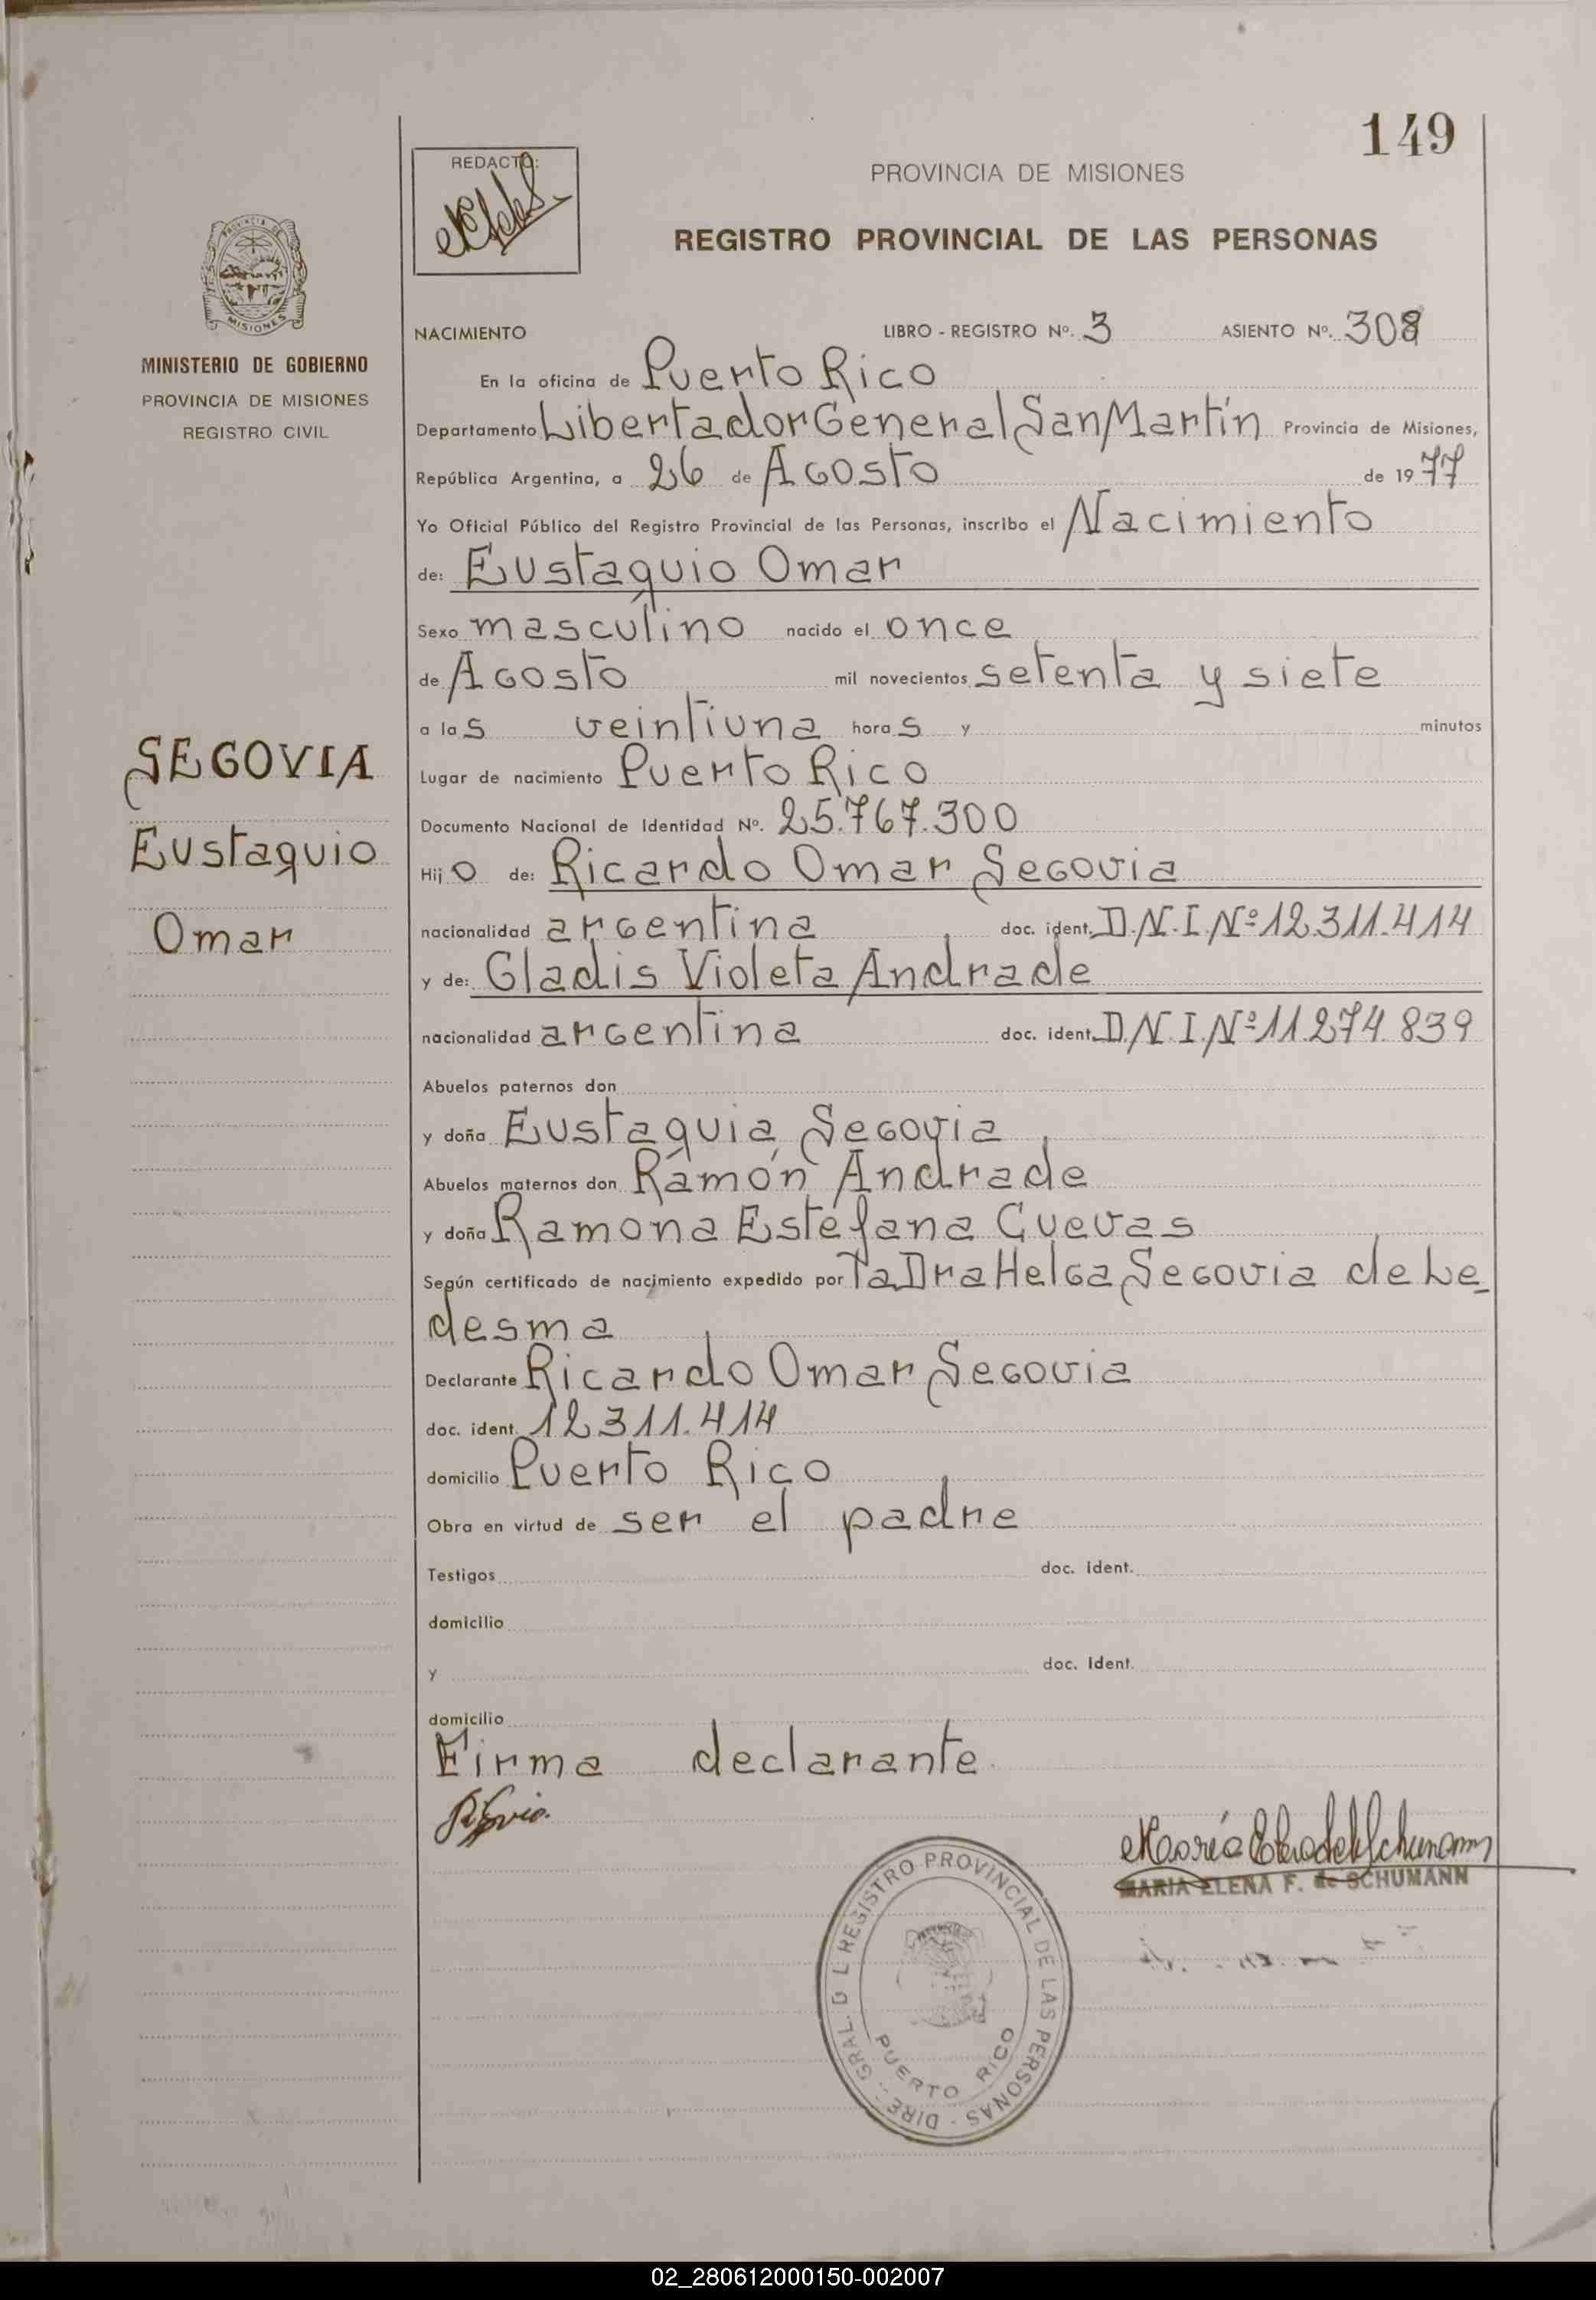 149
REDACTO:
PROVINCIA DE MISIONES
REGISTRO PROVINCIAL DE LAS PERSONAS
PROVINCIA DE
MISIONES
MINISTERIO DE GOBIERNO
PROVINCIA DE MISIONES
REGISTRO CIVIL
SEGOVIA
Eustaquio
Omar
NACIMIENTO LIBRO - REGISTRO Nº. 3 ASIENTO Nº. 308
En la oficina de Puerto Rico
Departamento Libertador General San Martín Provincia de Misiones,
República Argentina, a 26 de Agosto de 1977
Yo Oficial Público del Registro Provincial de las Personas, inscribo el Nacimiento
de: Eustaquio Omar
Sexo masculino nacido el once
de Agosto mil novecientos setenta y siete
a las veintiuna horas y minutos
Lugar de nacimiento Puerto Rico
Documento Nacional de Identidad Nº. 25.767.300
Hijo de: Ricardo Omar Segovia
nacionalidad argentina doc. ident. D.N.I.Nº12.311.414
y de: Gladis Violeta Andrade
nacionalidad argentina doc. ident. D.N.I.Nº11.274.839
Abuelos paternos don
y doña Eustaquia Segovia
Abuelos maternos don Ramón Andrade
y doña Ramona Estéfana Cuevas
Según certificado de nacimiento expedido por la Dra Helga Segovia de Le_
desma
Declarante Ricardo Omar Segovia
doc. ident. 12.311.414
domicilio Puerto Rico
Obra en virtud de ser el padre
Testigos doc. ident.
domicilio
y doc. Ident.
domicilio
Firma declarante.
MARIA ELENA F. de SCHUMANN
DIRE GRAL. D L REGISTRO PROVINCIAL DE LAS PERSONAS -
PUERTO RICO
02_280612000150-002007